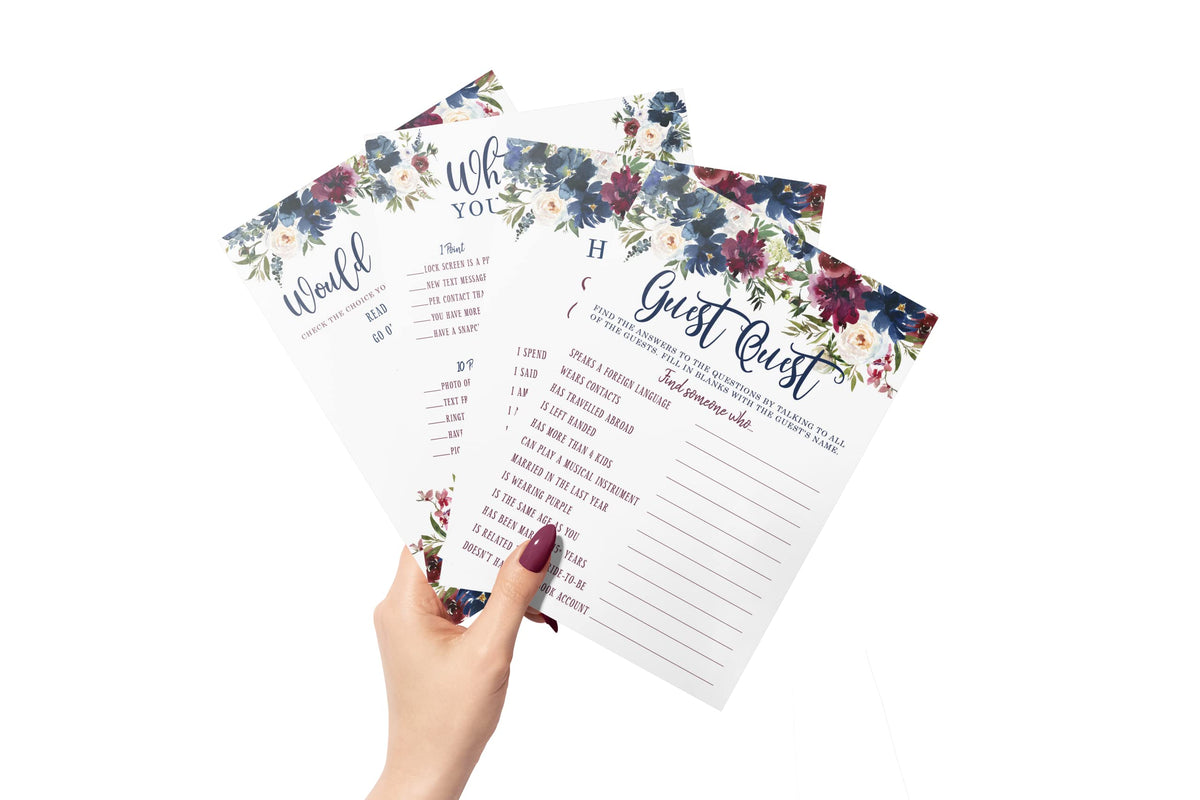 Would
CHECK THE CHOICE YO
READ
GO O'
Wh
YOU
1 Point
LOCK SCREEN IS A P
NEW TEXT MESSAGE
PER CONTACT THA
YOU HAVE MORE
HAVE A SNAPC
10 P
PHOTO OF
TEXT FR
RINGT
HAV
PIC
H
I SPEND
I SAID
I AM
I
Guest Quest
FIND THE ANSWERS TO THE QUESTIONS BY TALKING TO ALL
OF THE GUESTS. FILL IN BLANKS WITH THE GUEST'S NAME.
Find someone who...
SPEAKS A FOREIGN LANGUAGE
WEARS CONTACTS
HAS TRAVELLED ABROAD
IS LEFT HANDED
HAS MORE THAN 4 KIDS
CAN PLAY A MUSICAL INSTRUMENT
MARRIED IN THE LAST YEAR
IS WEARING PURPLE
IS THE SAME AGE AS YOU
HAS BEEN MAR 5+ YEARS
IS RELATED RIDE-TO-BE
DOESN'T HA OOK ACCOUNT